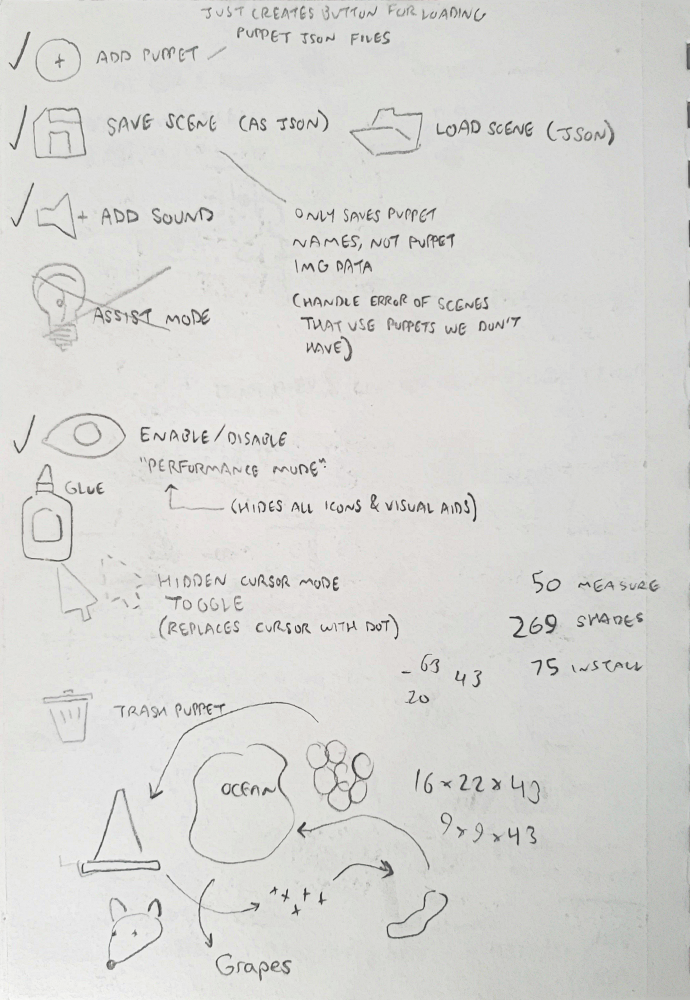 JUST CREATES BUTTON FOR LOADING
PUPPET JSON FILES
+ ADD PUPPET
SAVE SCENE (AS JSON)
LOAD SCENE (JSON)
+ ADD SOUND
ONLY SAVES PUPPET
NAMES, NOT PUPPET
IMG DATA
(HANDLE ERROR OF SCENES
THAT USE PUPPETS WE DON'T
HAVE)
ASSIST MODE
ENABLE/DISABLE
"PERFORMANCE MODE"
(HIDES ALL ICONS & VISUAL AIDS)
GLUE
HIDDEN CURSOR MODE
TOGGLE
(REPLACES CURSOR WITH DOT)
50 MEASURE
269 SHADES
75 INSTALL
- 63 43
20
TRASH PUPPET
OCEAN
16 x 22 x 43
9 x 9 x 43
Grapes